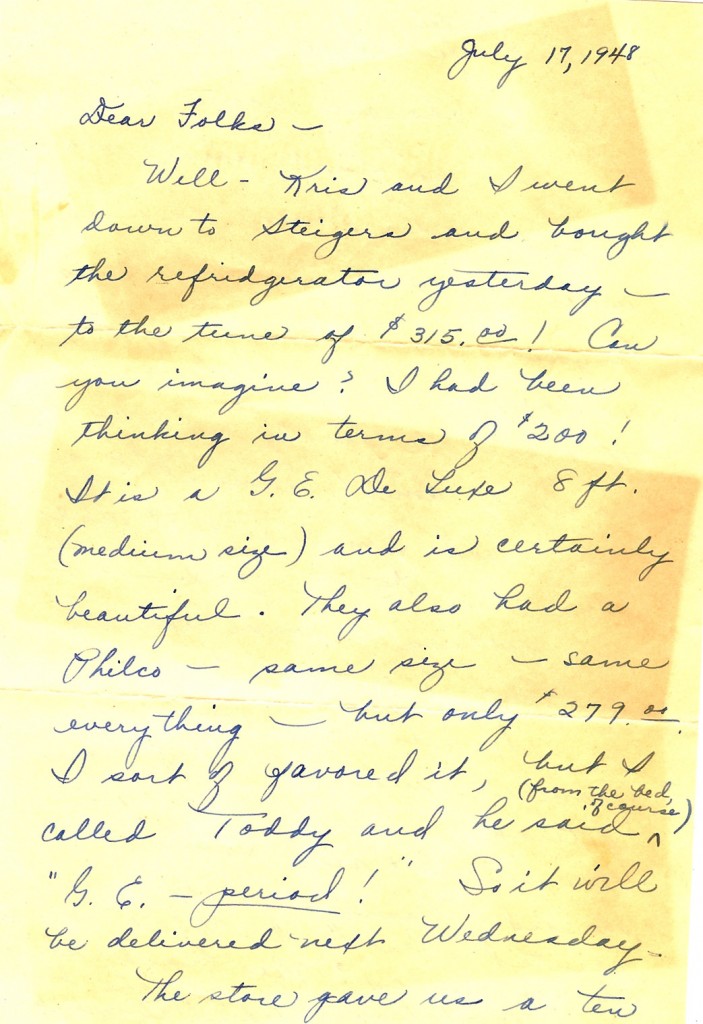 July 17, 1948
Dear Folks –
Well – Kris and I went
down to Steigers and bought
the refridgerator yesterday –
to the tune of $315.00! Can
you imagine? I had been
thinking in terms of $200!
It is a G.E. De Luxe 8 ft.
(medium size) and is certainly
beautiful. They also had a
Philco – same size – same
everything – but only $279.00.
I sort of favored it, but I
(from the bed,
of course)
called Toddy and he said ^
"G.E. – period!" So it will
be delivered next Wednesday.
The store gave us a ten